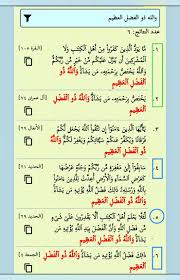 والله ذو الفضل العظيم
عدد النتائج: ٦
١- مَّا يَوَدُّ الَّذِينَ كَفَرُوا مِنْ أَهْلِ الْكِتَٰبِ وَلَا [البقرة ١٠٥]
الْمُشْرِكِينَ أَن يُنَزَّلَ عَلَيْكُم مِّنْ خَيْرٍ مِّن رَّبِّكُمْ
وَاللَّهُ يَخْتَصُّ بِرَحْمَتِهِ مَن يَشَاءُ وَاللَّهُ ذُو
الْفَضْلِ الْعَظِيمِ
٢- يَخْتَصُّ بِرَحْمَتِهِ مَن يَشَاءُ وَاللَّهُ ذُو الْفَضْلِ [آل عمران ٧٤]
الْعَظِيمِ
٣- الَّذِينَ آمَنُوا إِن تَتَّقُوا اللَّهَ يَجْعَل لَّكُمْ [الأنفال ٢٩]
وَاللَّهُ ذُو
الْفَضْلِ الْعَظِيمِ
٤- سَابِقُوا إِلَىٰ مَغْفِرَةٍ مِّن رَّبِّكُمْ وَجَنَّةٍ عَرْضُهَا [الحديد ٢١]
كَعَرْضِ السَّمَاءِ وَالْأَرْضِ أُعِدَّتْ لِلَّذِينَ آمَنُوا
بِاللَّهِ وَرُسُلِهِ ذَٰلِكَ فَضْلُ اللَّهِ يُؤْتِيهِ مَن يَشَاءُ
وَاللَّهُ ذُو الْفَضْلِ الْعَظِيمِ
٥- لِّئَلَّا يَعْلَمَ أَهْلُ الْكِتَٰبِ أَلَّا يَقْدِرُونَ عَلَىٰ شَيْءٍ [الحديد ٢٩]
مَن يَشَاءُ وَاللَّهُ ذُو الْفَضْلِ
الْعَظِيمِ
٦- ذَٰلِكَ فَضْلُ اللَّهِ يُؤْتِيهِ مَن يَشَاءُ وَاللَّهُ ذُو
الْفَضْلِ الْعَظِيمِ